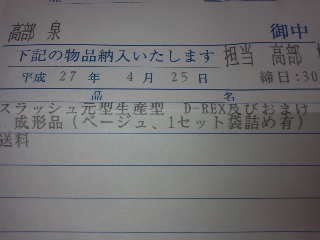 No.
高部 泉 御中
下記の物品納入いたします 担当 高部
平成 27 年 4 月 25 日 締日:30
品 名
スラッシュ元型生産型 D-REX及びおまけ
成形品(ベージュ、1セット袋詰め有)
送料